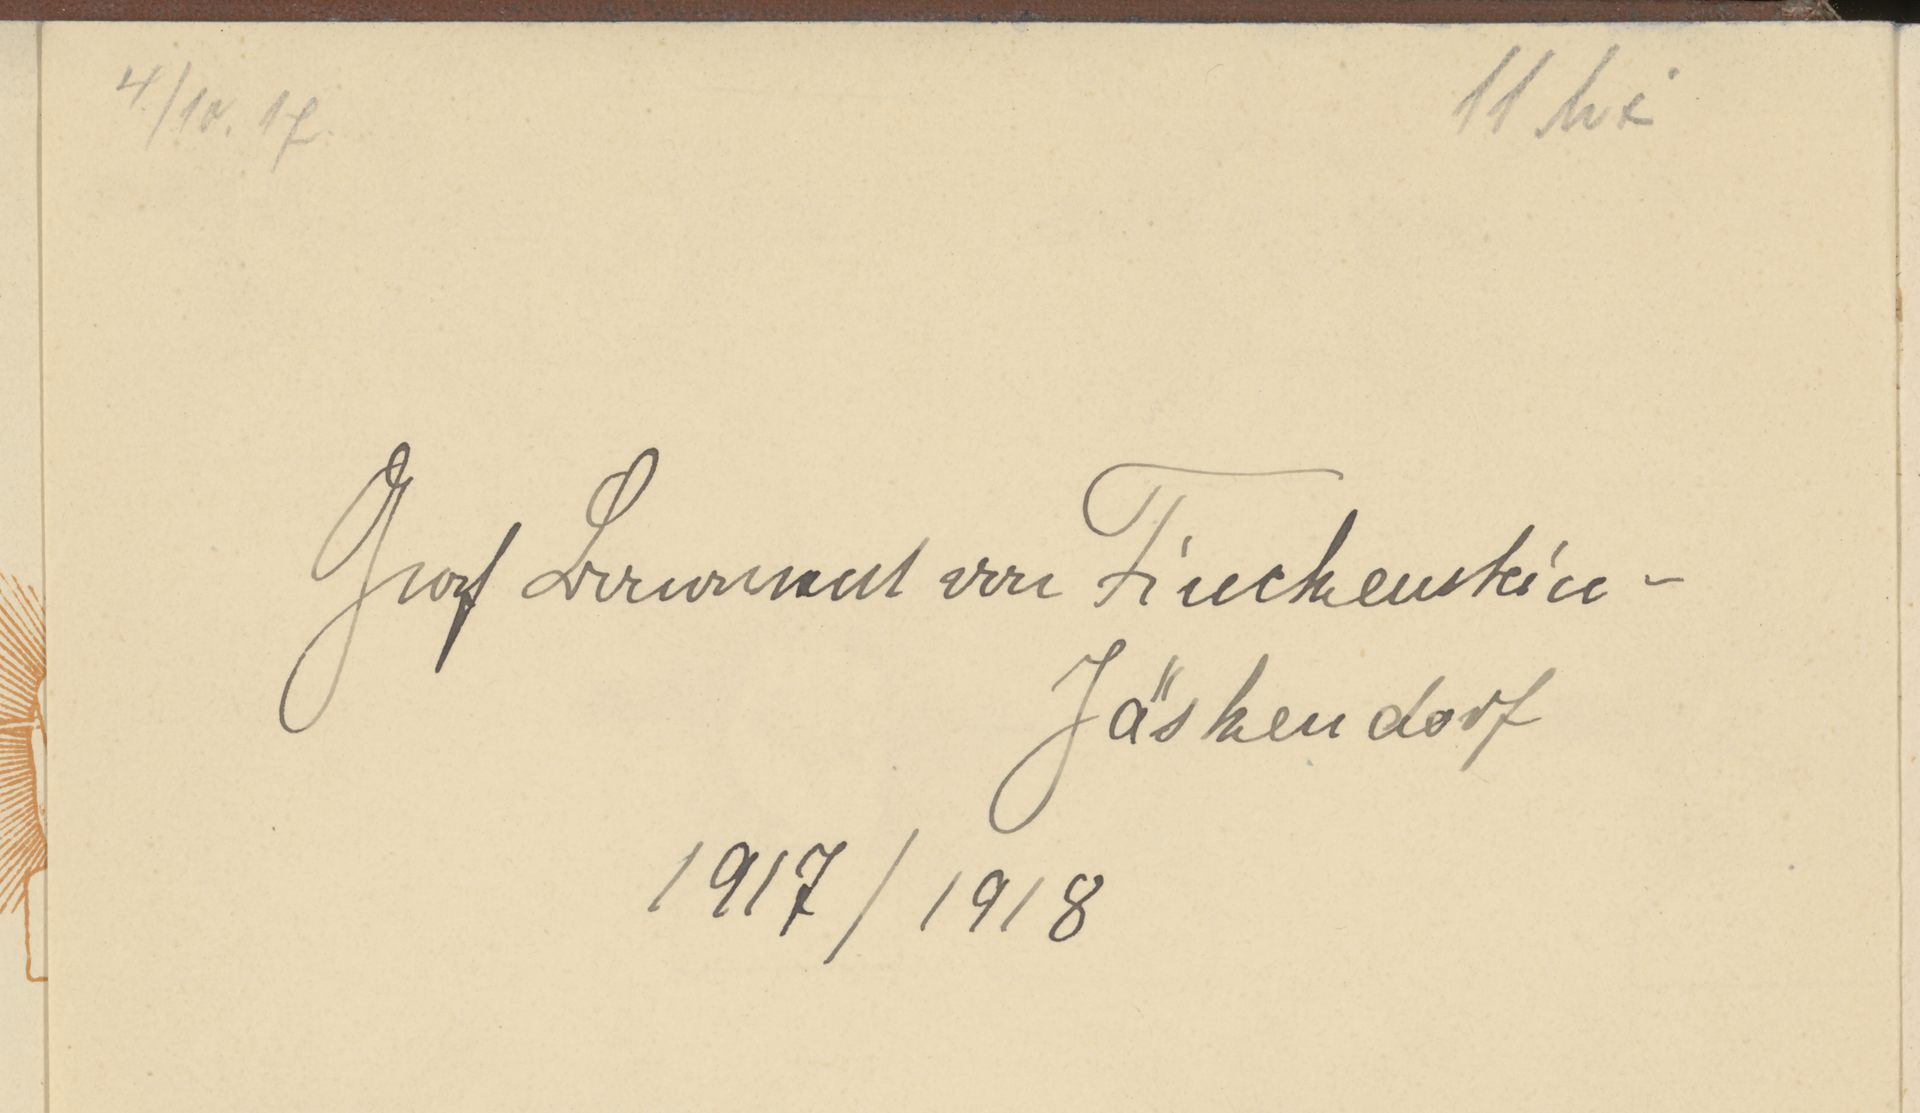 4/10. 17.
11
Graf Bonaventura von Finckenstein -
Jäskendorf
1917 / 1918